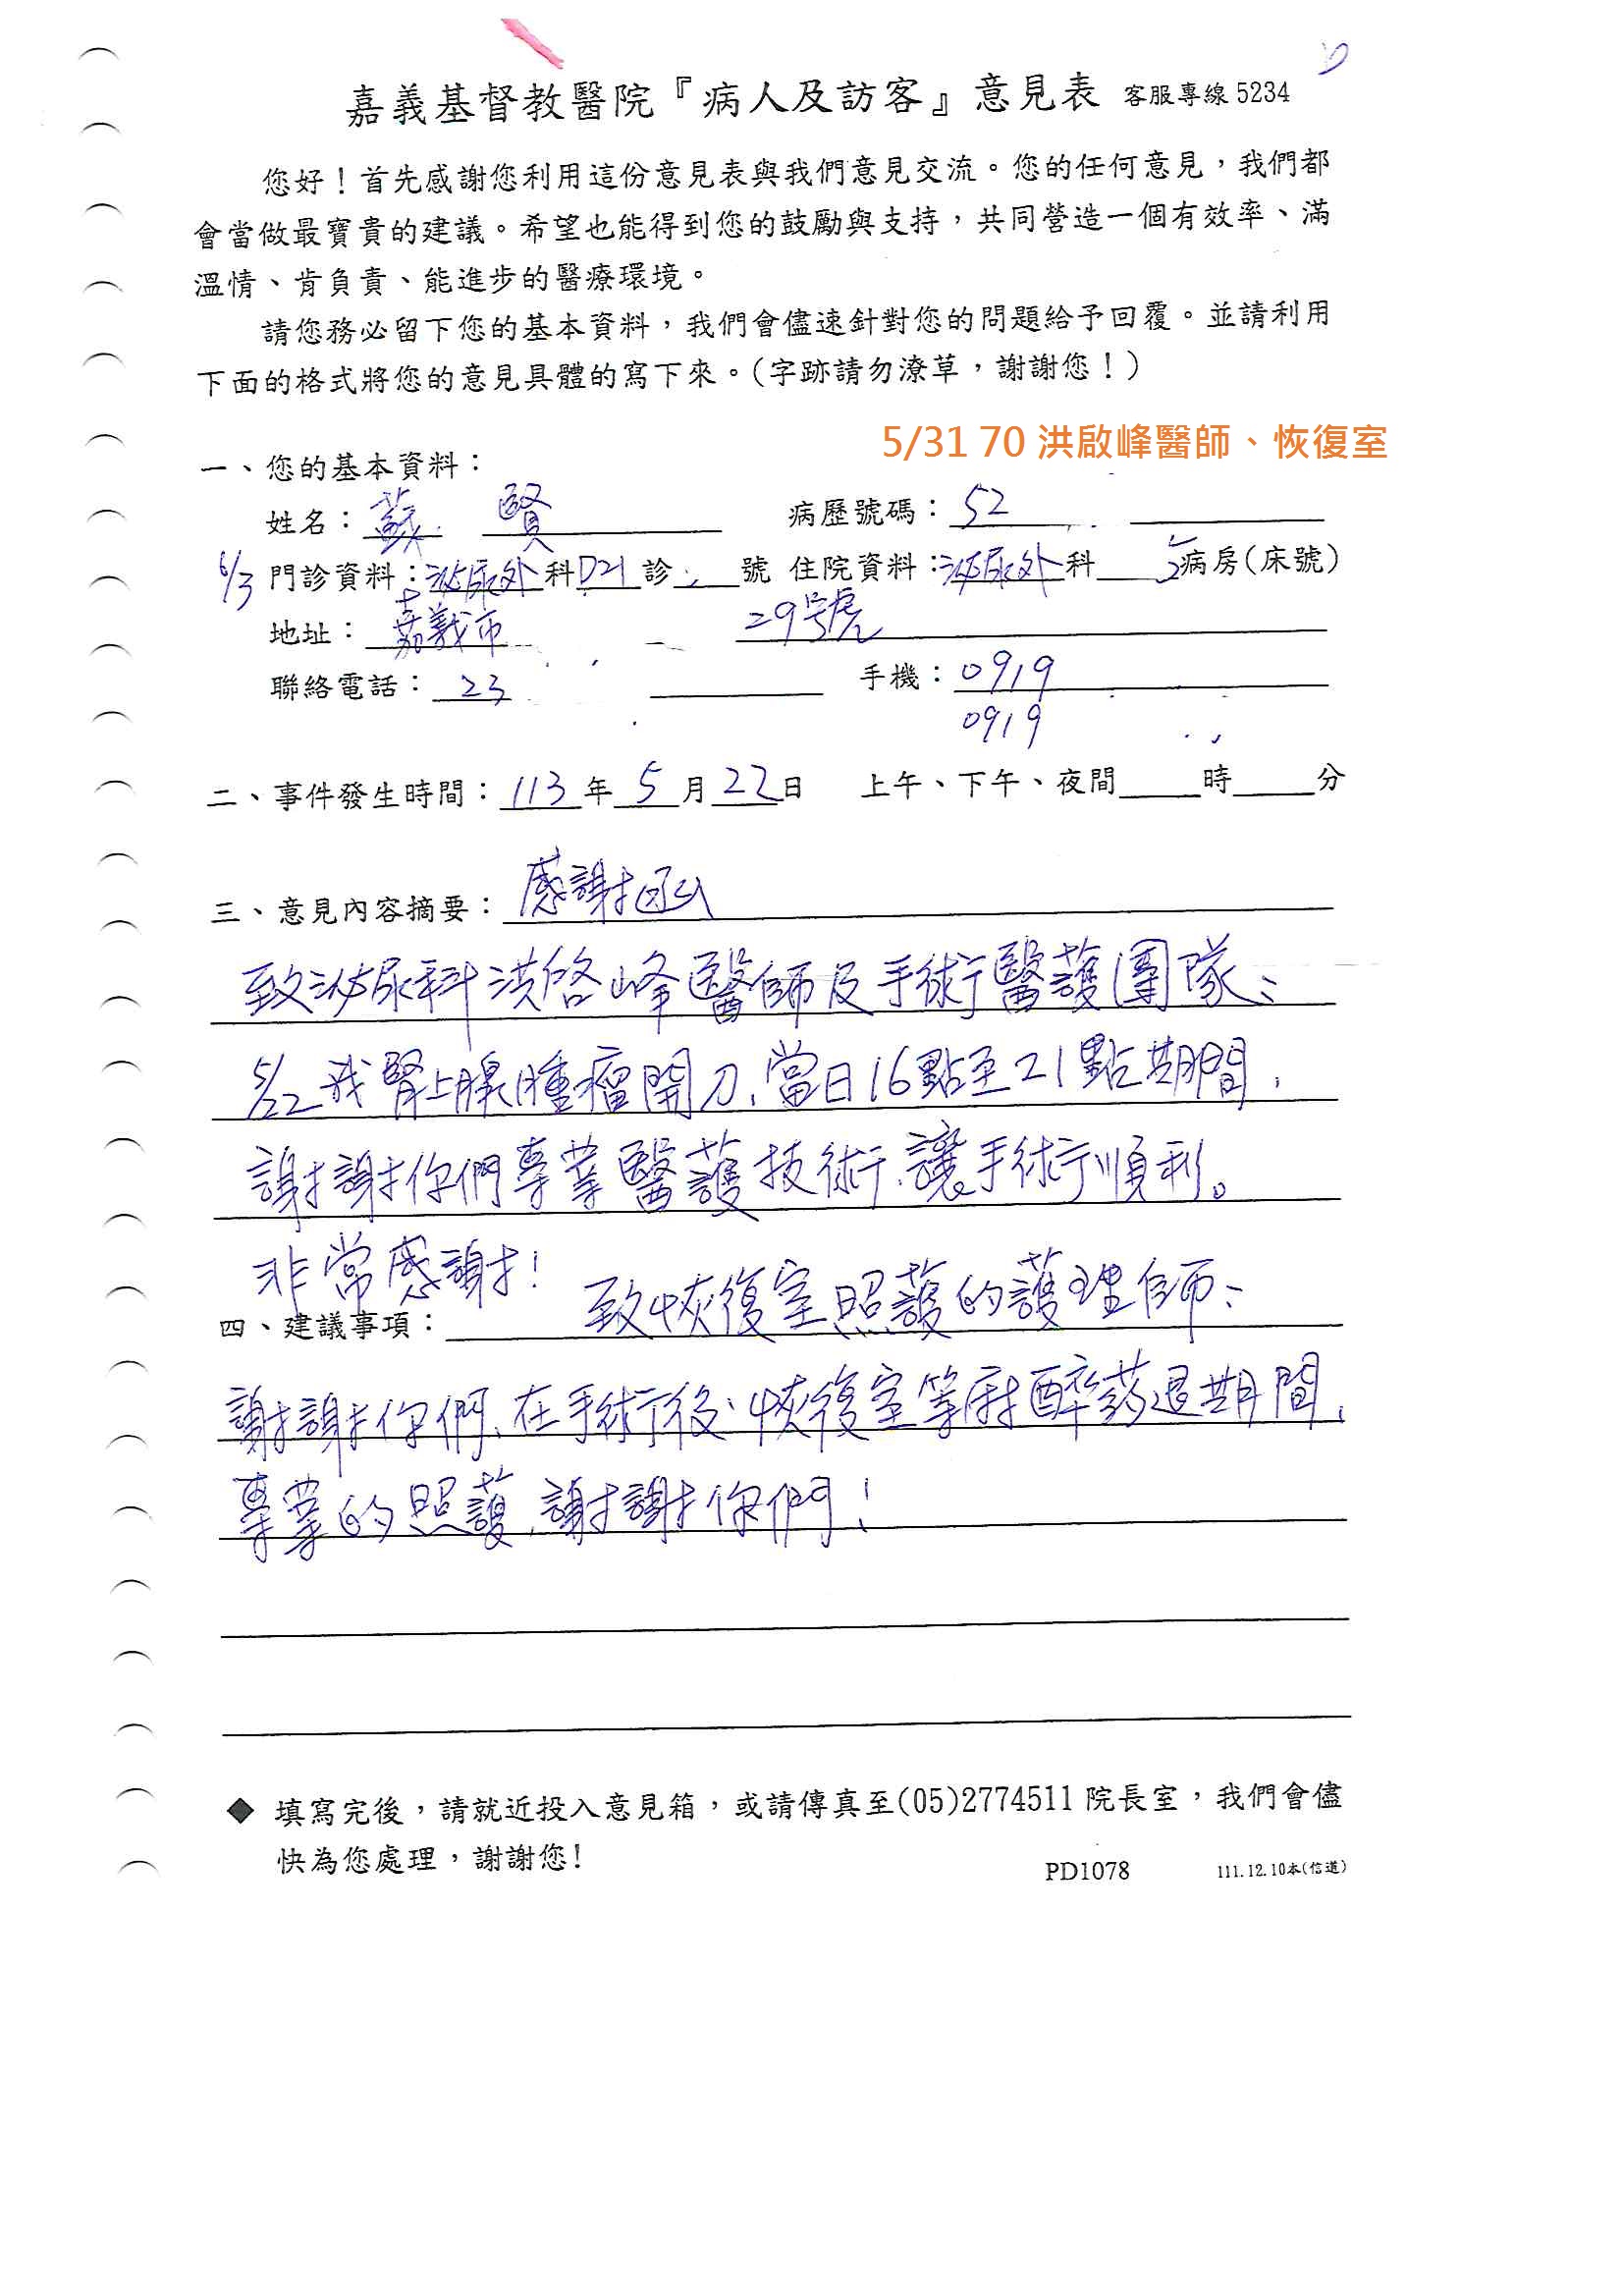 嘉義基督教醫院『病人及訪客』意見表 客服專線 5234
您好！首先感謝您利用這份意見表與我們意見交流。您的任何意見，我們都
會當做最寶貴的建議。希望也能得到您的鼓勵與支持，共同營造一個有效率、滿
溫情、肯負責、能進步的醫療環境。
請您務必留下您的基本資料，我們會儘速針對您的問題給予回覆。並請利用
下面的格式將您的意見具體的寫下來。(字跡請勿潦草，謝謝您！)
5/31 70 洪啟峰醫師、恢復室
一、您的基本資料：
姓名：蘇 賢 病歷號碼：52
6/3 門診資料：泌尿外科D21診 號 住院資料：泌尿外科 病房(床號)
地址：嘉義市 29號
聯絡電話：23 手機：0919
0919
二、事件發生時間：113年5月22日 上午、下午、夜間 時 分
三、意見內容摘要：感謝函
致泌尿科洪啓峰醫師及手術醫護團隊：
5/22我腎上腺腫瘤開刀、當日16點至21點期間、
謝謝你們專業醫護技術、讓手術順利。
非常感謝！
四、建議事項： 致恢復室照護的護理師：
謝謝你們、在手術後、恢復室等麻醉葯退期間、
專業的照護、謝謝你們！
◆ 填寫完後，請就近投入意見箱，或請傳真至(05)2774511 院長室，我們會儘
快為您處理，謝謝您!
PD1078 111.12.10本(信道)